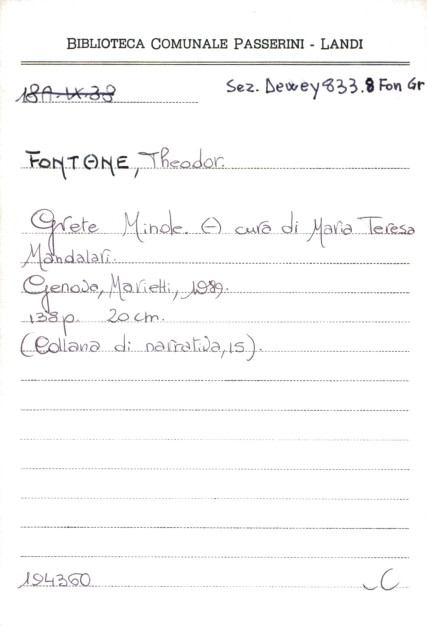 BIBLIOTECA COMUNALE PASSERINI - LANDI
18A.IX.38
Sez. Dewey 833.8 Fon Gr
FONTANE, Theodor.
Grete Minde. A cura di Maria Teresa
Mandalari.
Genova, Marietti, 1989.
138p. 20 cm.
(Collana di narrativa, 15).
194360
C